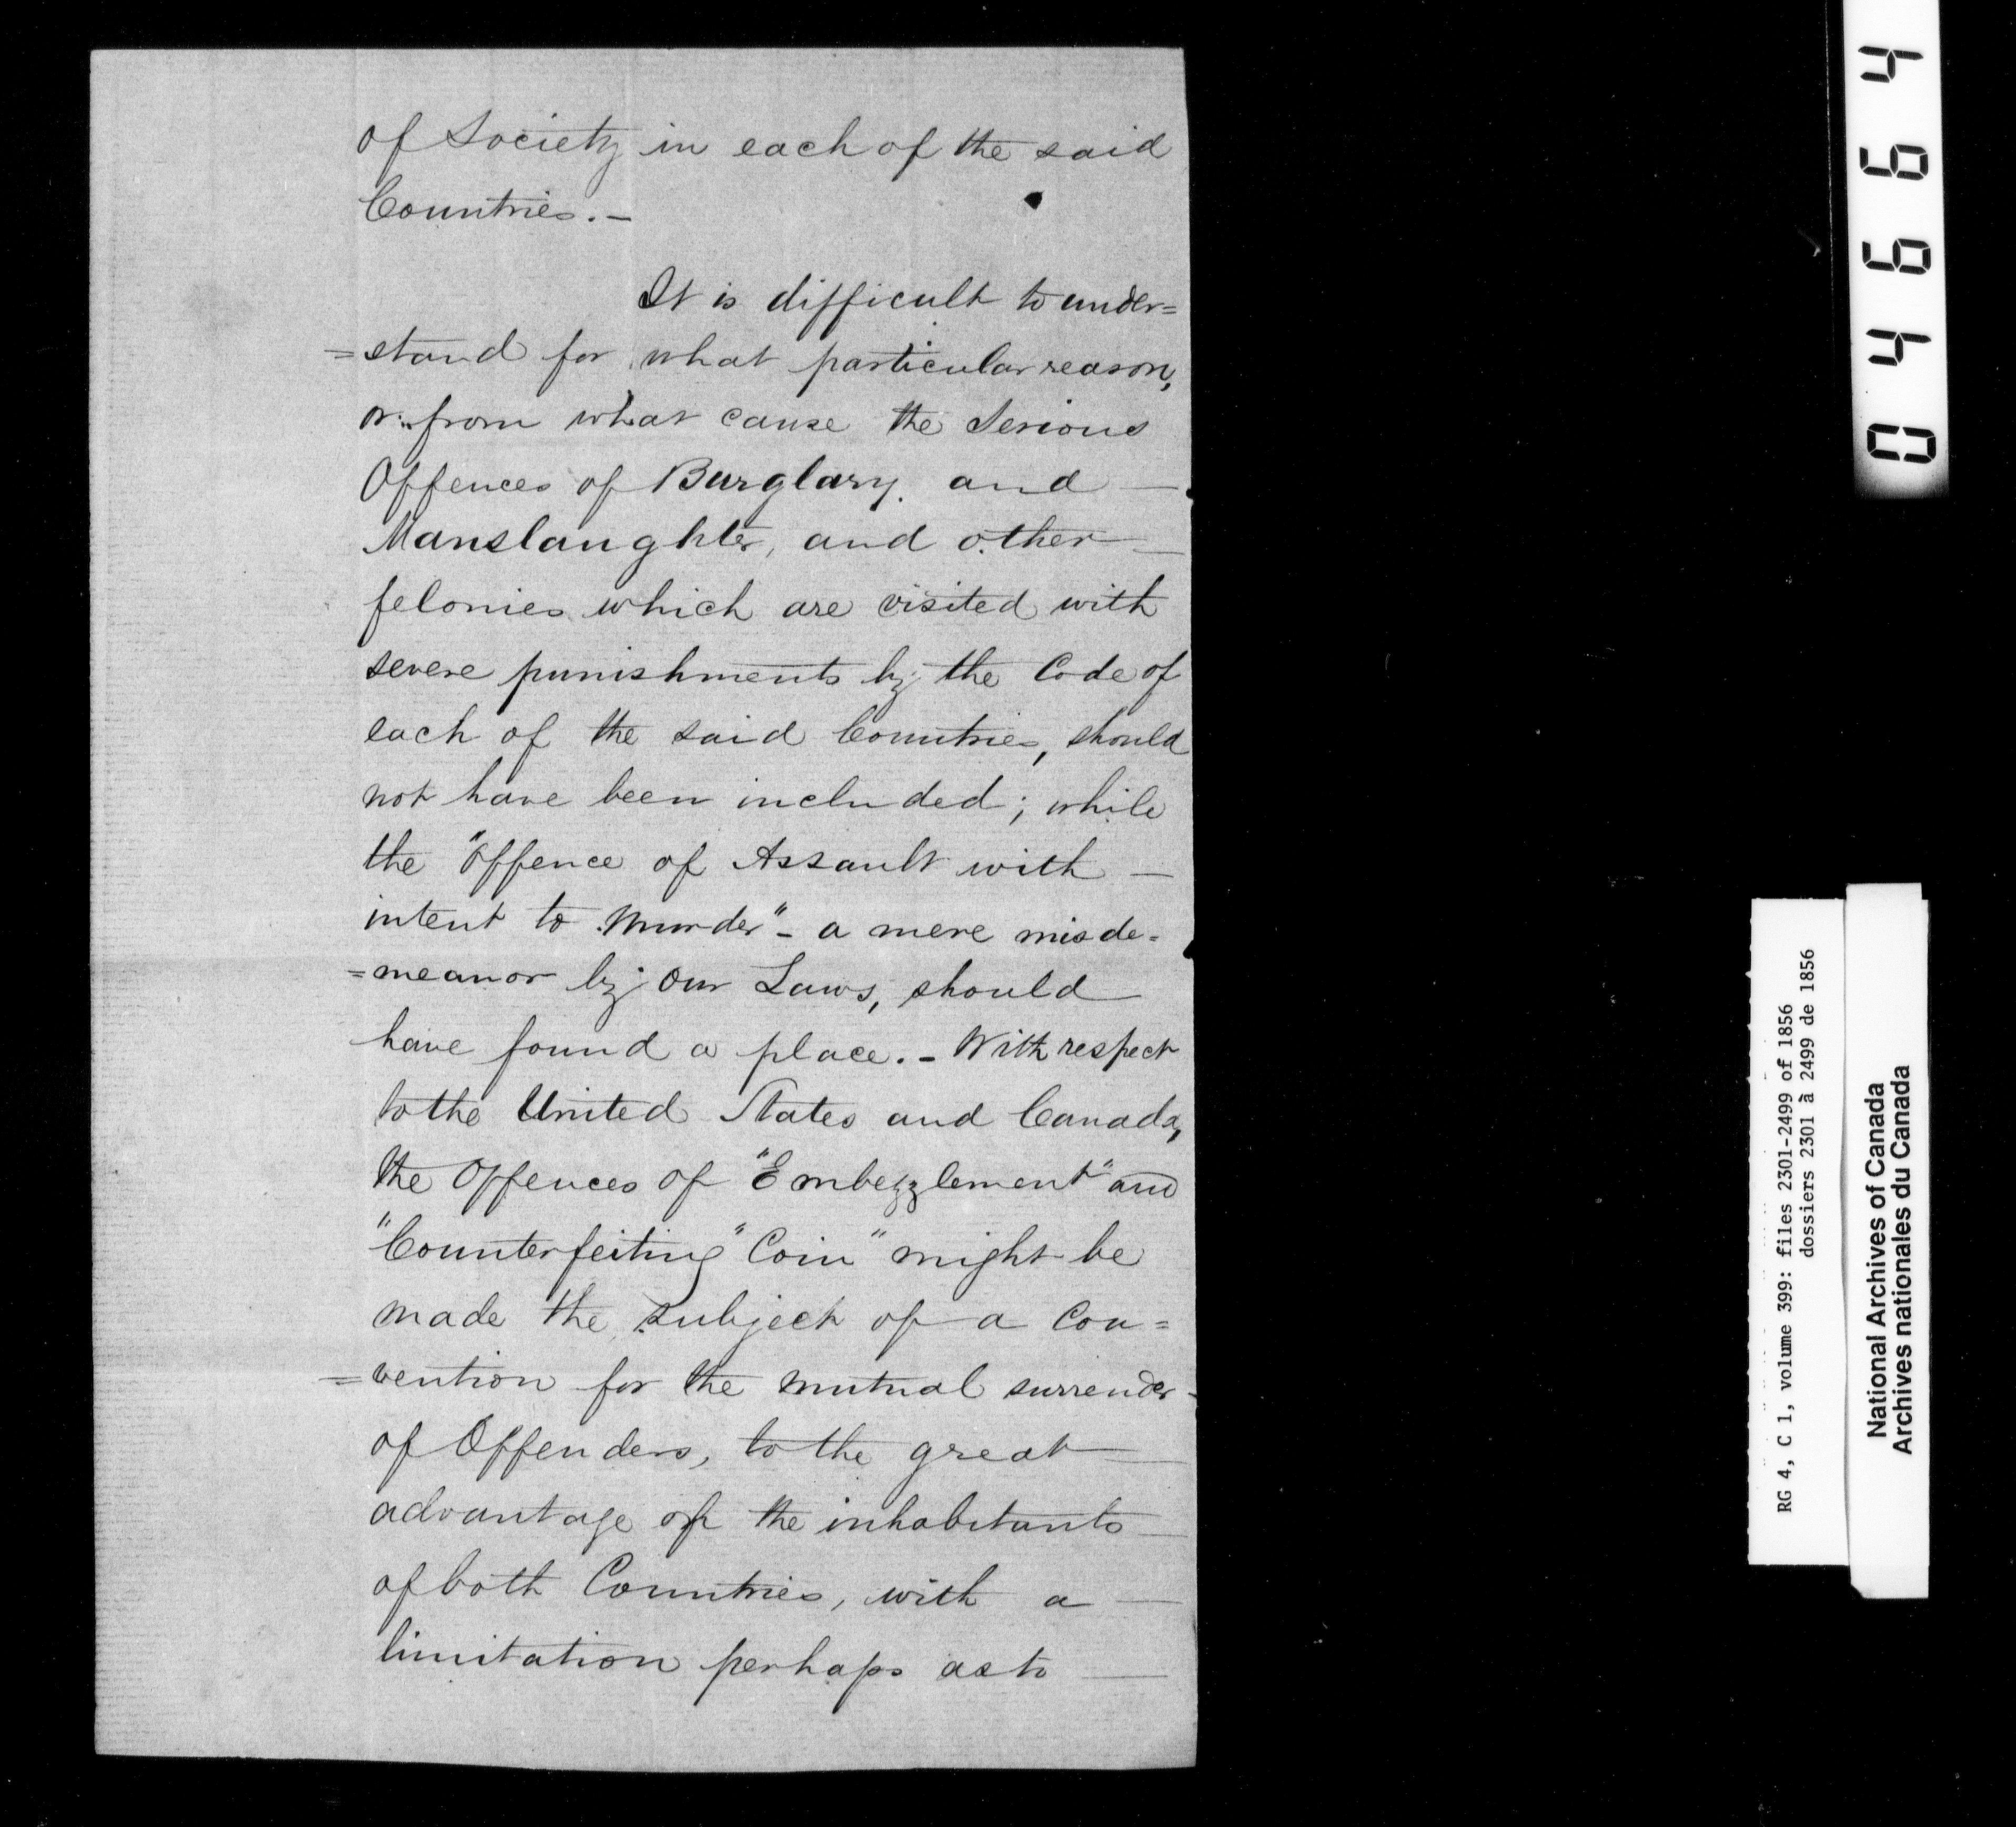 of Society in each of the said
Countries. –
It is difficult to under=
=stand for what particular reason,
or from what cause the Serious
Offences of Burglary and –
Manslaughter, and other –
felonies which are visited with
severe punishments by the Code of
each of the said Countries, should
not have been included; while
the "Offence of Assault with –
intent to Murder" – a mere misde=
=meanor by our Laws, should
have found a place. – With respect
to the United States and Canada,
the Offences of "Embezzlement" and
"Counterfeiting" Coin" might be
made the subject of a Con=
=vention for the mutual surrender
of Offenders, to the great –
advantage of the inhabitants –
of both Countries, with a –
limitation perhaps as to –
04664
RG 4, C 1, volume 399: files 2301-2499 of 1856
dossiers 2301 à 2499 de 1856
National Archives of Canada
Archives nationales du Canada